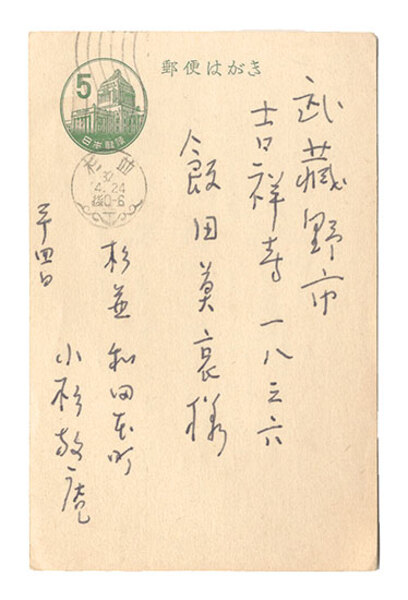 郵便はがき
5
日本郵便
杉並
32
4.24
後0-6
武蔵野市
吉祥寺一八三六
飯田莫哀様
杉並和田本町
小杉放庵
廿四日